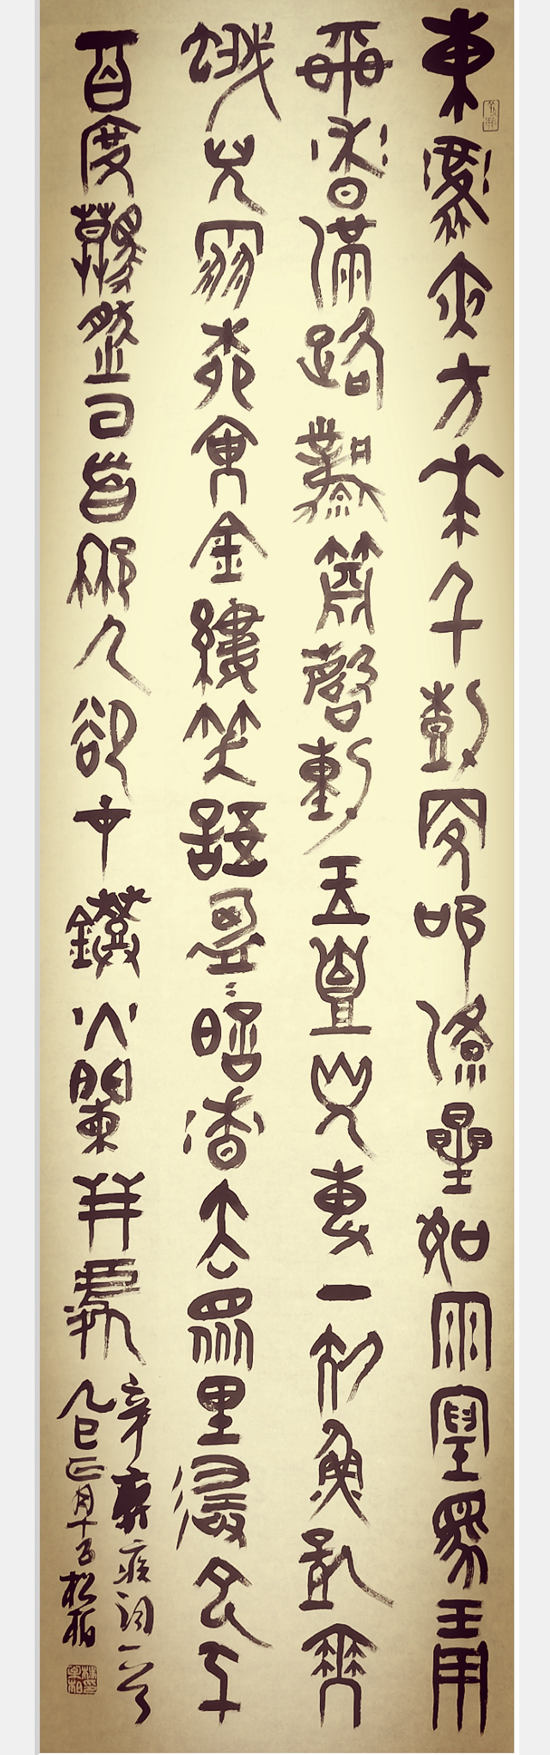 東風夜放花千樹更吹落星如雨寶馬雕
車香滿路鳳簫聲動玉壺光轉一夜魚龍舞
蛾兒雪柳黃金縷笑語盈盈暗香去眾里尋他千
百度驀然回首那人卻在燈火闌珊處
辛棄疾詞一首
乙巳正月十五松柏